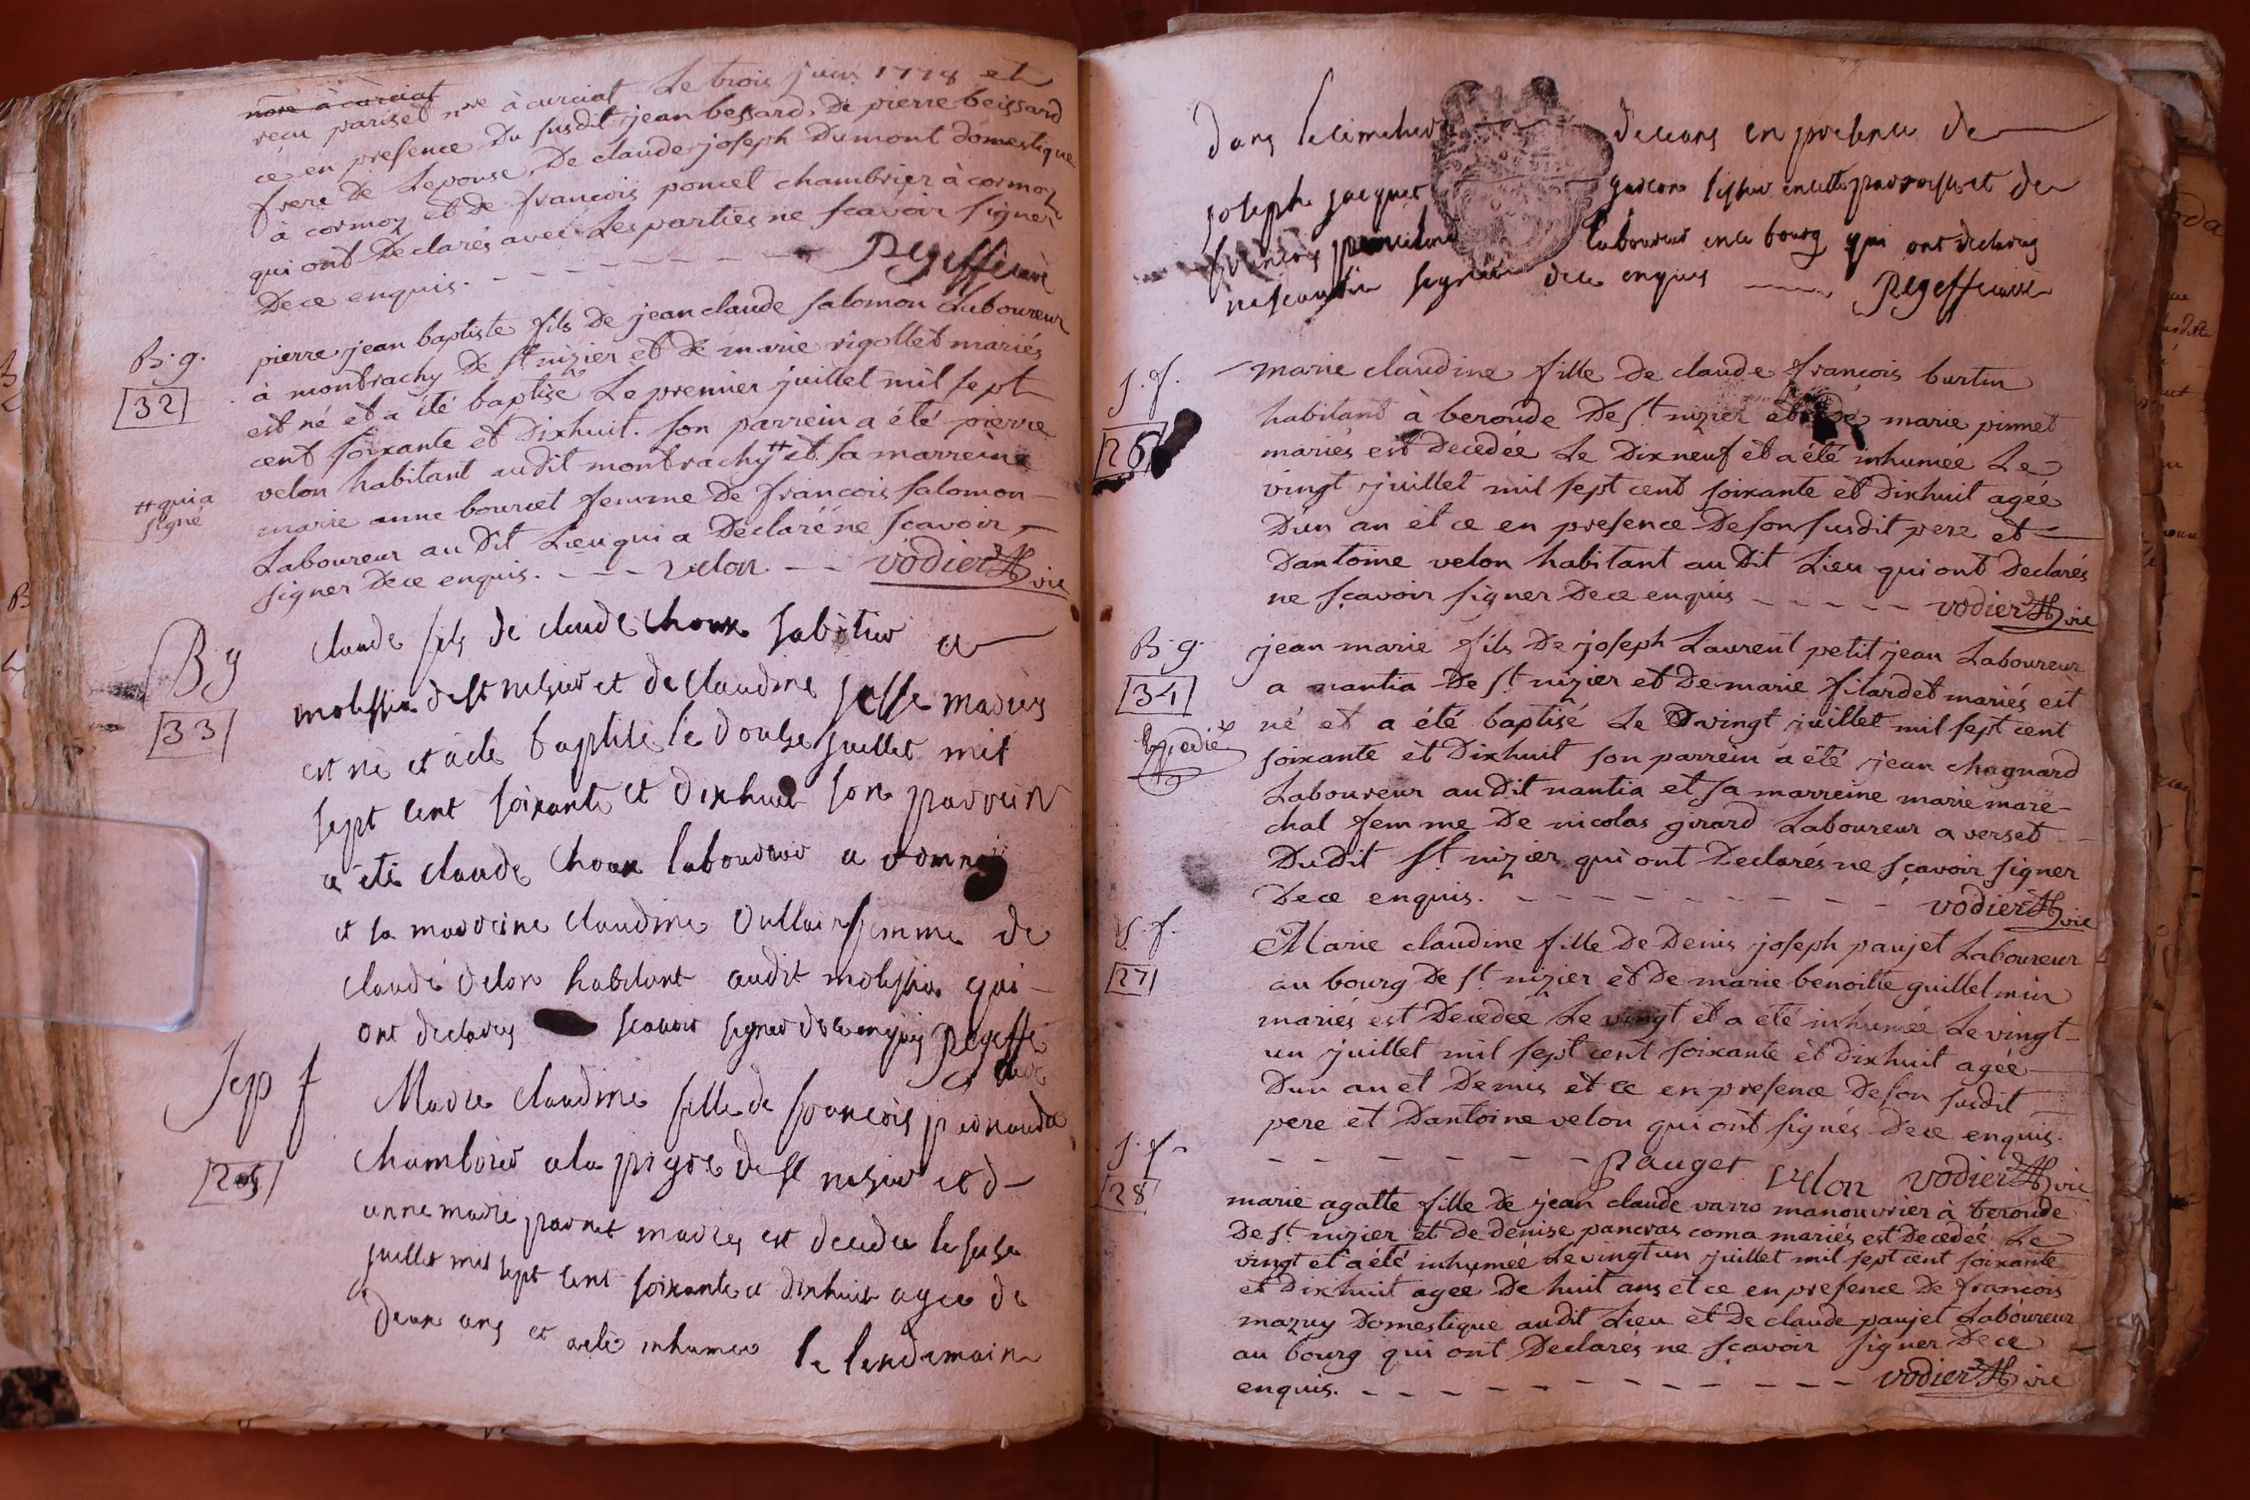 nore à curciat
recu pariset nre à curciat Le trois juin 1778 et
ce en presence Du susdit jean bessard, De pierre beissard
frere de Lepouse, De claude joseph Dumont domestique
a cormoz et de francois poncet chambrier à cormoz
qui ont Declarés avec Les parties ne scavoir signer
De ce enquis. Regeffe curé
B. g.
32
pierre jean baptiste fils De jean claude salomon Laboureur
à montrachy De st nizier et de marie rigollet mariés
est né et a été baptisé Le premier juillet mil sept
cent soixante et Dixhuit. son parrein a été pierre
velon habitant audit montrachy # et sa marreine
# qui a
signé
marie anne bourcet femme De francois salomon
Laboureur au Dit Lieu qui a Declaré ne scavoir
signer De ce enquis. velon vodier vic
B g
33
claude fils de claude choux habiteur a
molissia de st nisier et de claudine jesse maries
est né et a eté baptisé le douse juillet mil
sept cent soixante et dixhuit son parrein
a eté claude choux laboureur a
et sa marreine claudine femme de
claude velon habitant audit molissia qui
ont declares scavoir signer de ce enquis Regeffe
curé
Sep f
25
Marie claudine fille de francois
chambrier a la de st nisier et d
anne marie mariés est decedee le seise
juillet mil sept cent soixante et dixhuit agee de
deux ans et a eté inhumee le lendemain
Dans le cimetiere deceans en presence de
joseph jacquet garcon tissier en cette parroisse et de
francois laboureur en ce bourg qui ont declares
ne scavoir signer de ce enquis Regeffe curé
s. f.
26
marie claudine fille De claude françois burtin
habitant à beroude De st nizier et de marie pinnet
mariés est Decedée Le Dixneuf et a été inhumée Le
vingt juillet mil sept cent soixante et Dixhuit agée
Dun an et ce en presence De son susdit pere et
Dantoine velon habitant au Dit Lieu qui ont Declarés
ne sçavoir signer De ce enquis vodier vic
B. g.
34
Expedié
jean marie fils De joseph Laurent petitjean Laboureur
a nantia De st nizier et De marie filardet mariés est
né et a été baptisé Le vingt juillet mil sept cent
soixante et Dixhuit son parrein a été jean chagnard
Laboureur au Dit nantia et sa marreine marie mare-
chal femme De nicolas girard Laboureur a verset
DuDit st nizier qui ont Declarés ne sçavoir signer
De ce enquis. vodier vic
S. f.
27
Marie claudine fille De Denis joseph paujet Laboureur
au bourg De st nizier et De marie benoitte guillelmin
mariés est Decedée Le vingt et a eté inhumée Le vingt
un juillet mil sept cent soixante et dixhuit agée
Dun an et Demis et ce en presence De son susdit
pere et Dantoine velon qui ont signés De ce enquis.
Pauget velon vodier vic
s. f.
28
marie agatte fille De jean claude varro manouvrier à beroude
De st nizier et de denise pancras coma mariés est Decedée Le
vingt et a été inhumée Le vingt un juillet mil sept cent soixante
et Dixhuit agée De huit ans et ce en presence De francois
mazuy Domestique audit Lieu et De claude paujet Laboureur
au bourg qui ont Declarés ne sçavoir signer De ce
enquis. vodier vic